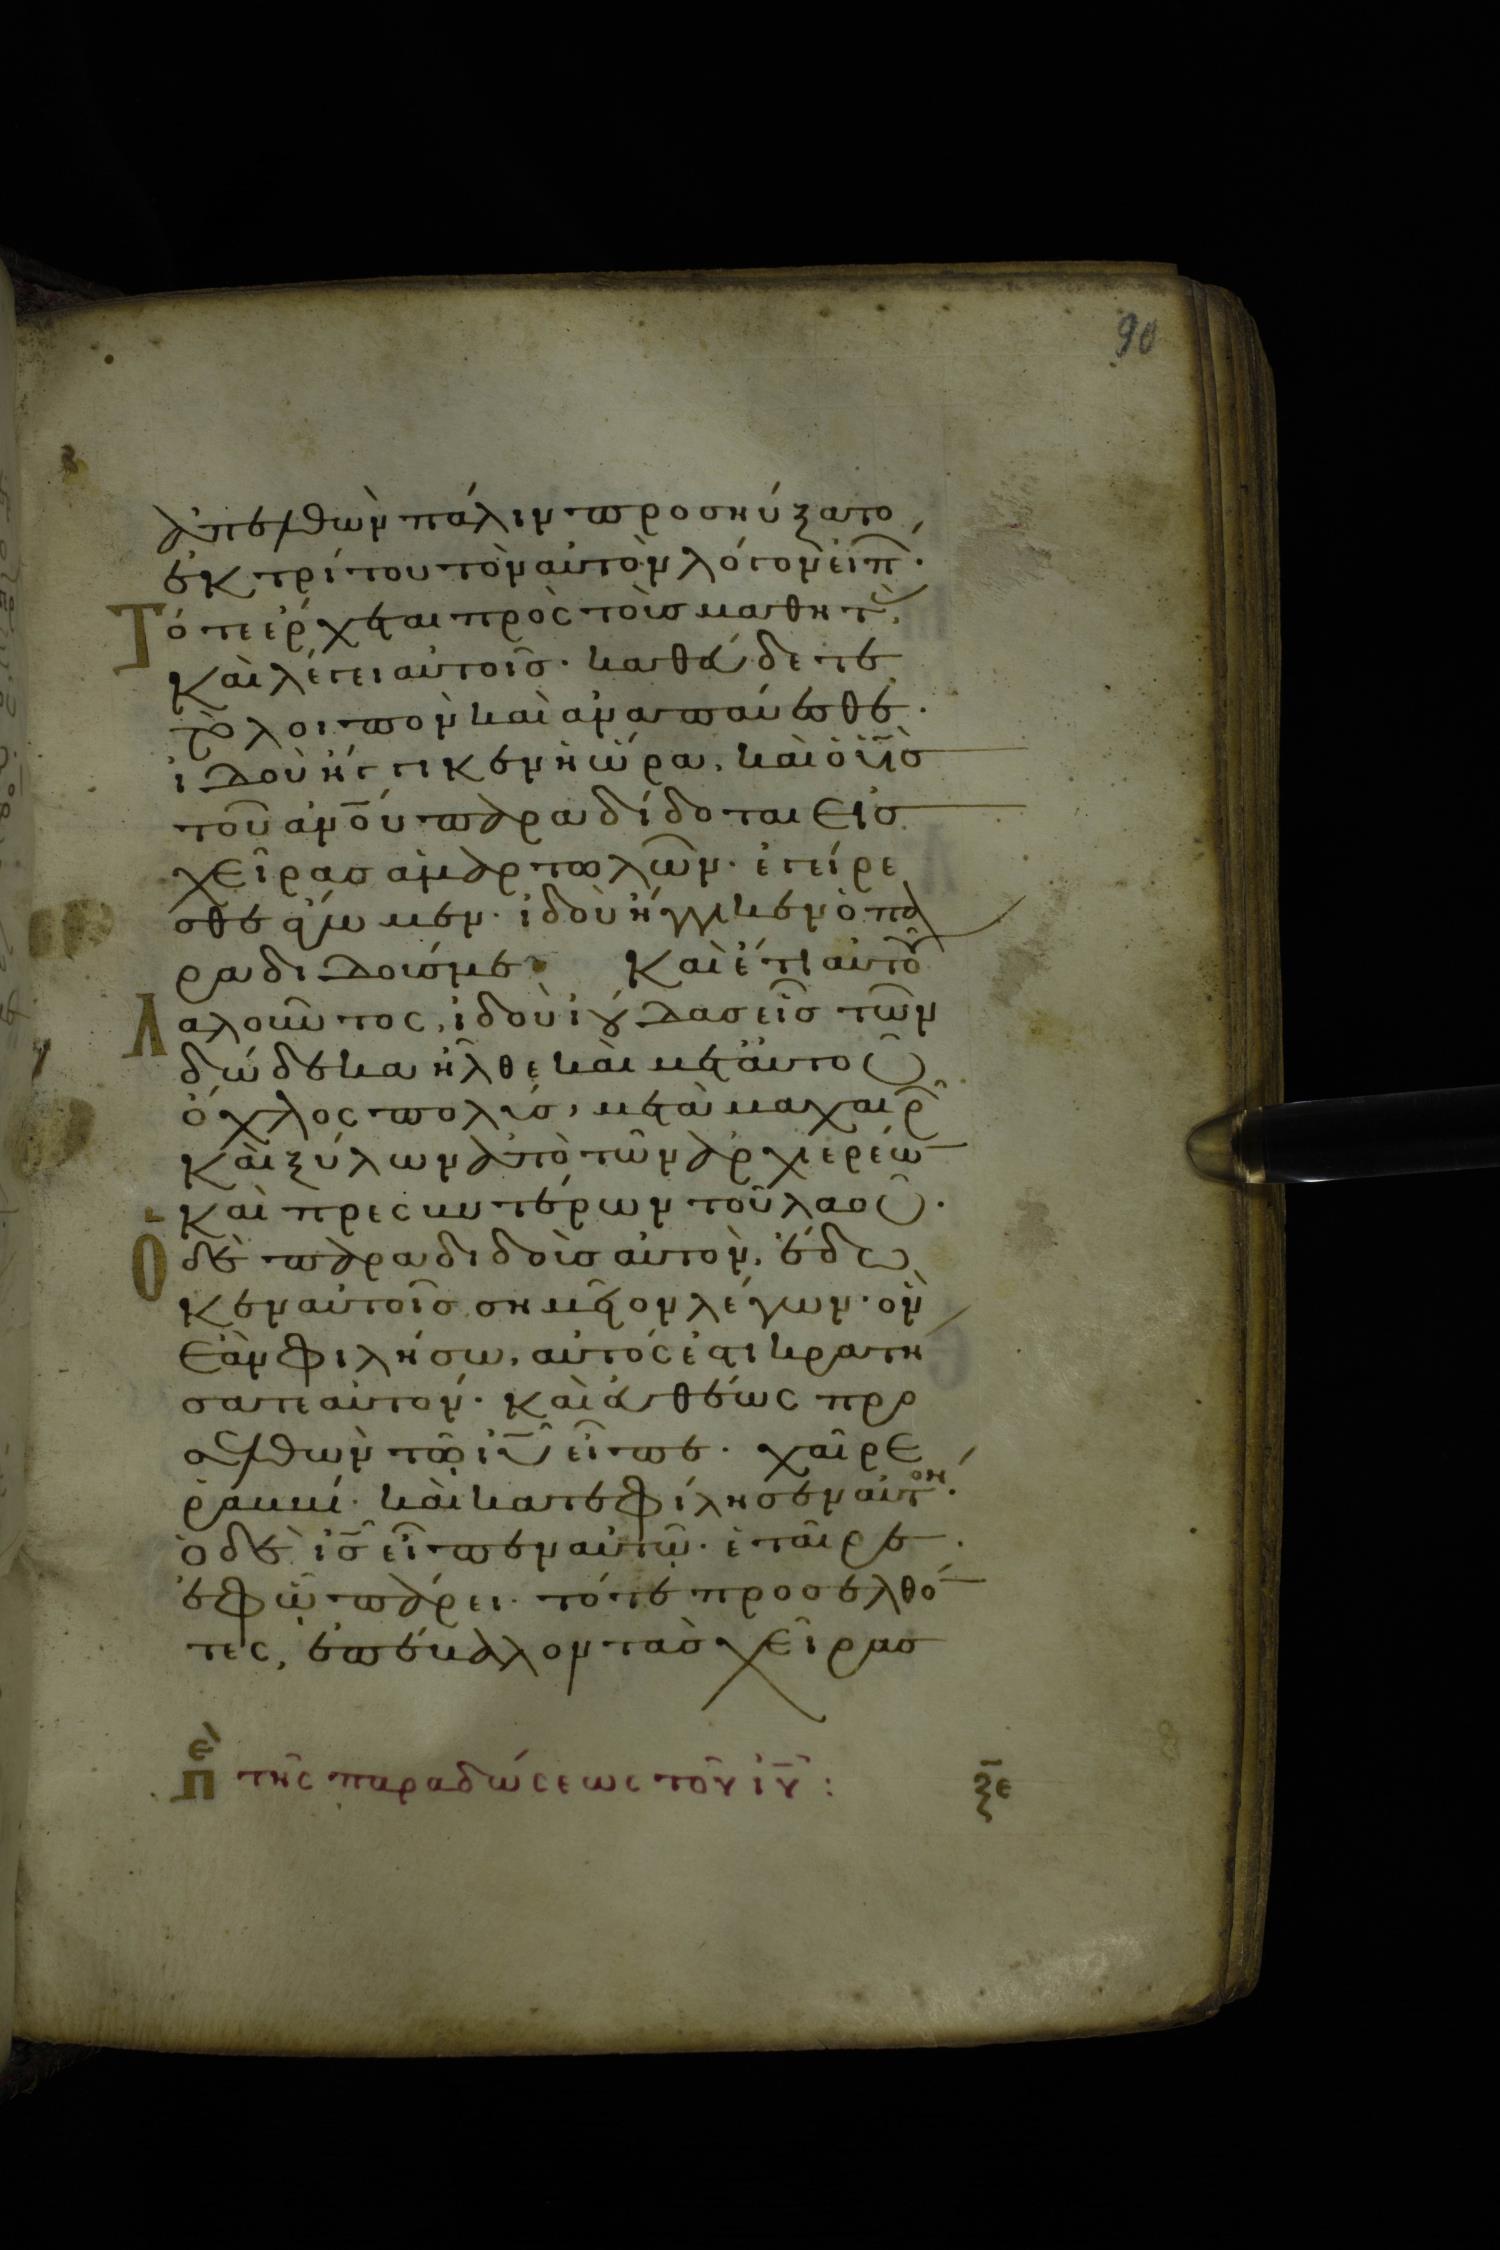 90
ἀπελθὼν πάλιν προσηύξατο
ἐκ τρίτου τὸν αὐτὸν λόγον εἰπ·
Τότε ἔρχεται πρὸς τοὺς μαθητ.
Καὶ λέγει αὐτοῖσ· καθεύδετε
τὸ λοιπὸν καὶ ἀναπαύεσθε·
ἰδοὺ ἤγγικεν ἡ ὥρα, καὶ ὁ υἱὸσ
τοῦ ἀνου παραδίδοται εἰσ
χεῖρασ ἁμαρτωλῶν· ἐγείρε
σθε ἄγωμεν· ἰδοὺ ἤγγικεν ὁ πα
ραδιδούσ με Καὶ ἔτι αὐτοῦ
Λαλοῦντος, ἰδοὺ ἰούδασ εἷσ τῶν
δώδεκα ἦλθε καὶ μετ αὐτοῦ
ὄχλος πολύσ, μετὰ μαχαιρ
Καὶ ξύλων ἀπὸ τῶν ἀρχιερέω
Καὶ πρεσβυτέρων τοῦ λαοῦ·
Ὁ δὲ παραδιδοὺσ αὐτὸν, ἔδω
κεν αὐτοῖσ σημεῖον λέγων· ὃν
Ἐὰν φιλήσω, αὐτός ἐστι κρατή
σατε αὐτόν· Καὶ εὐθέως προ
σελθὼν τῶ ιυ εἶπε· χαῖρε
ῥαββί· καὶ κατεφίλησεν αὐτον·
ὁ δὲ ισ εἶπεν αὐτῶ· ἑταῖρε·
ἐφ ὧ πάρει· τότε προσελθό
τες, ἐπέβαλον τὰσ χεῖρασ
πε τῆς παραδώσεως τοῦ ιυ : ξε